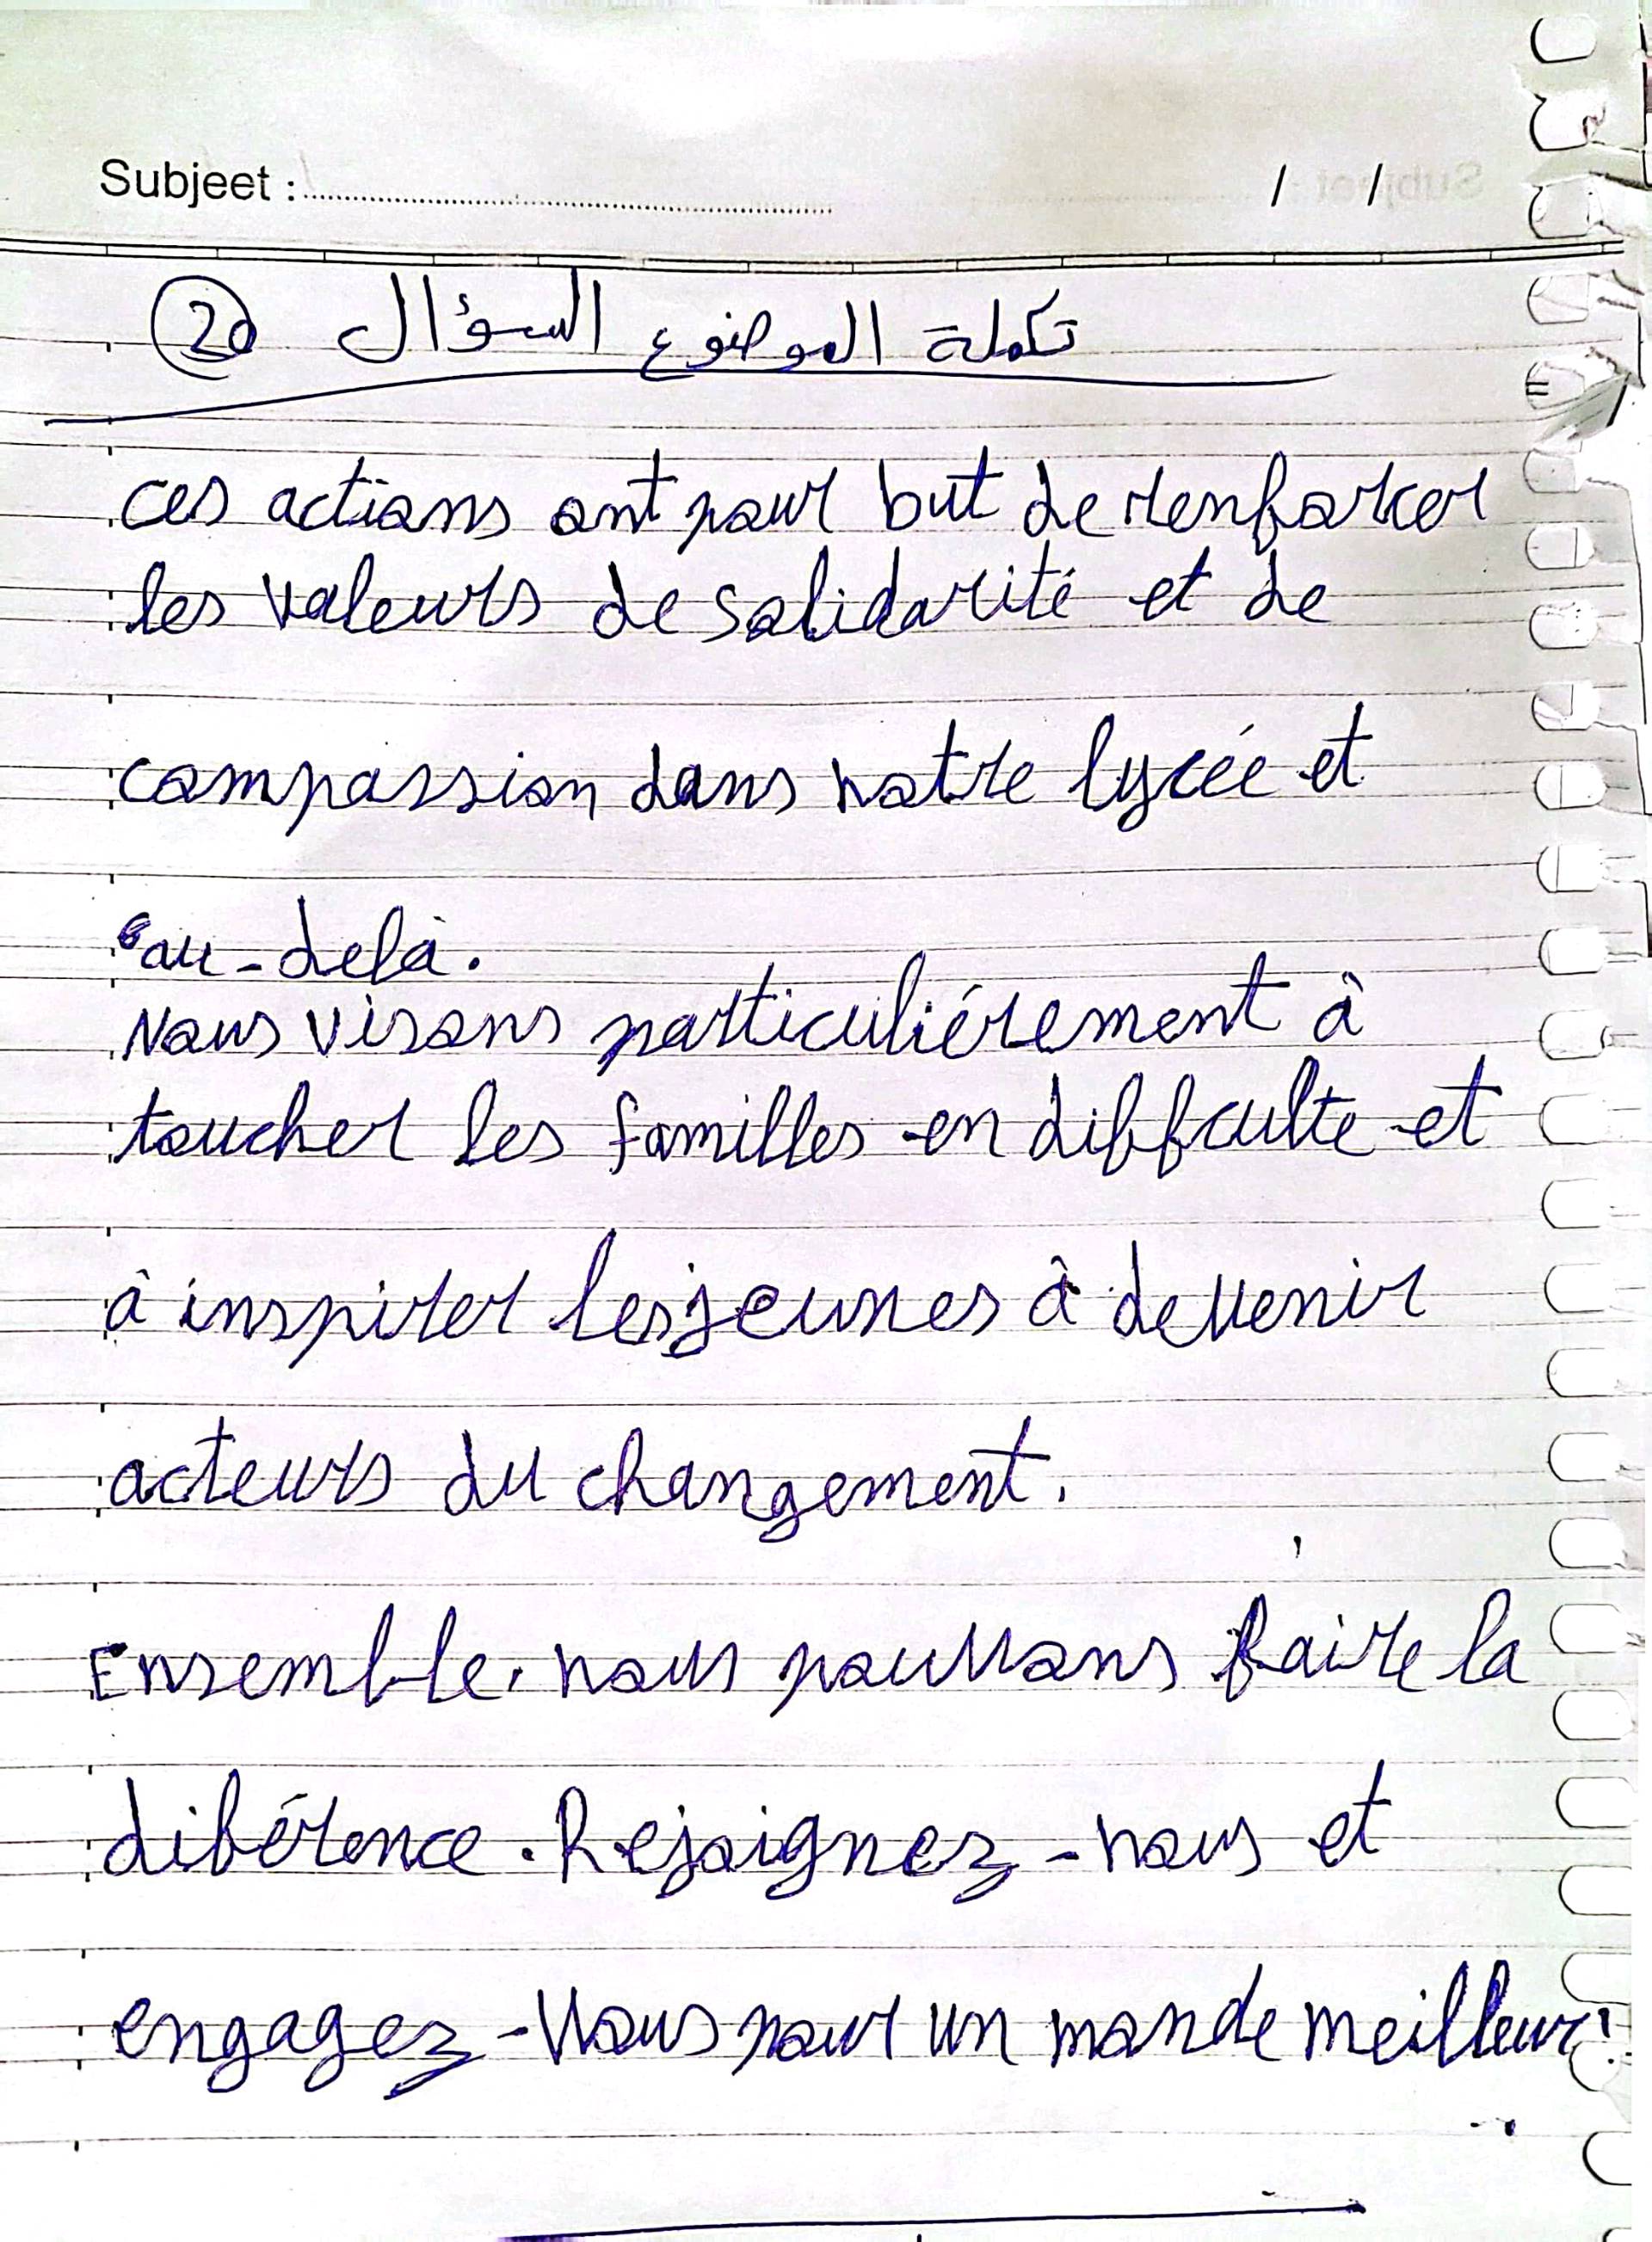 Subjeet : / /
تكملة الموضوع السؤال 20
ces actions ont pour but de renforcer
les valeurs de solidarité et de
compassion dans notre lycée et
au-delà.
Nous visons particuliérement à
toucher les familles en diffculte et
à inspirer les jeunes à devenir
acteurs du changement.
Ensemble, nous pouvons faire la
diférence. Rejoignez-nous et
engagez-Vous pour un monde meilleur!